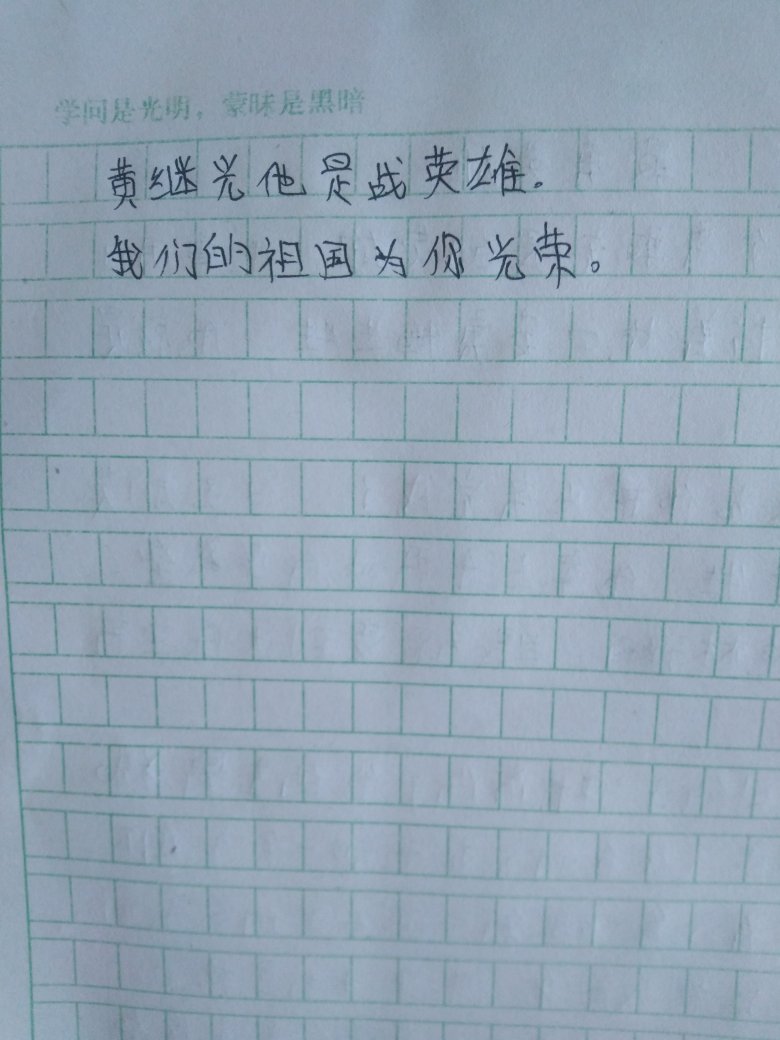 学问是光明，蒙昧是黑暗
黄继光他是战英雄。
我们的祖国为你光荣。